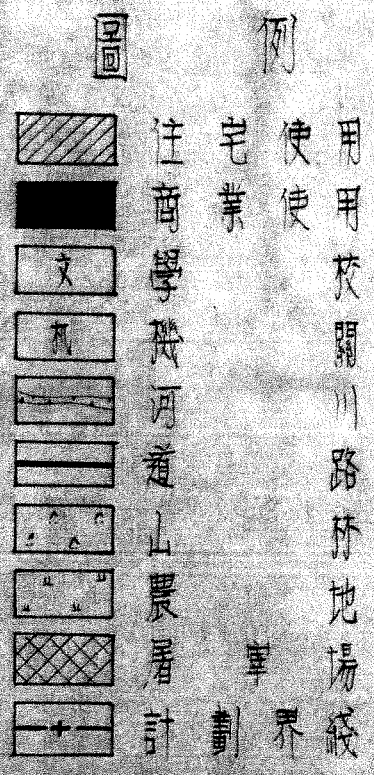 圖例
住宅使用
商業使用
文 學校
机 機關
河川
道路
山林
農地
屠宰場
計劃界綫